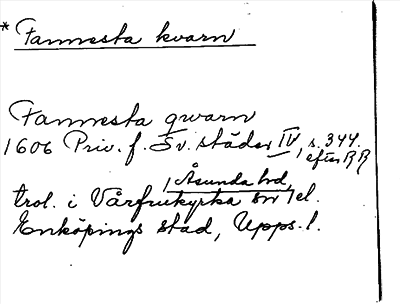 * Fannesta kvarn
Fannesta qwarn
1606 Priv. f. Sv. städer IV, s. 344.
efter RR
, Åsunda hd,
trol. i Vårfrukyrka sn el.
Enköpings stad, Upps. l.